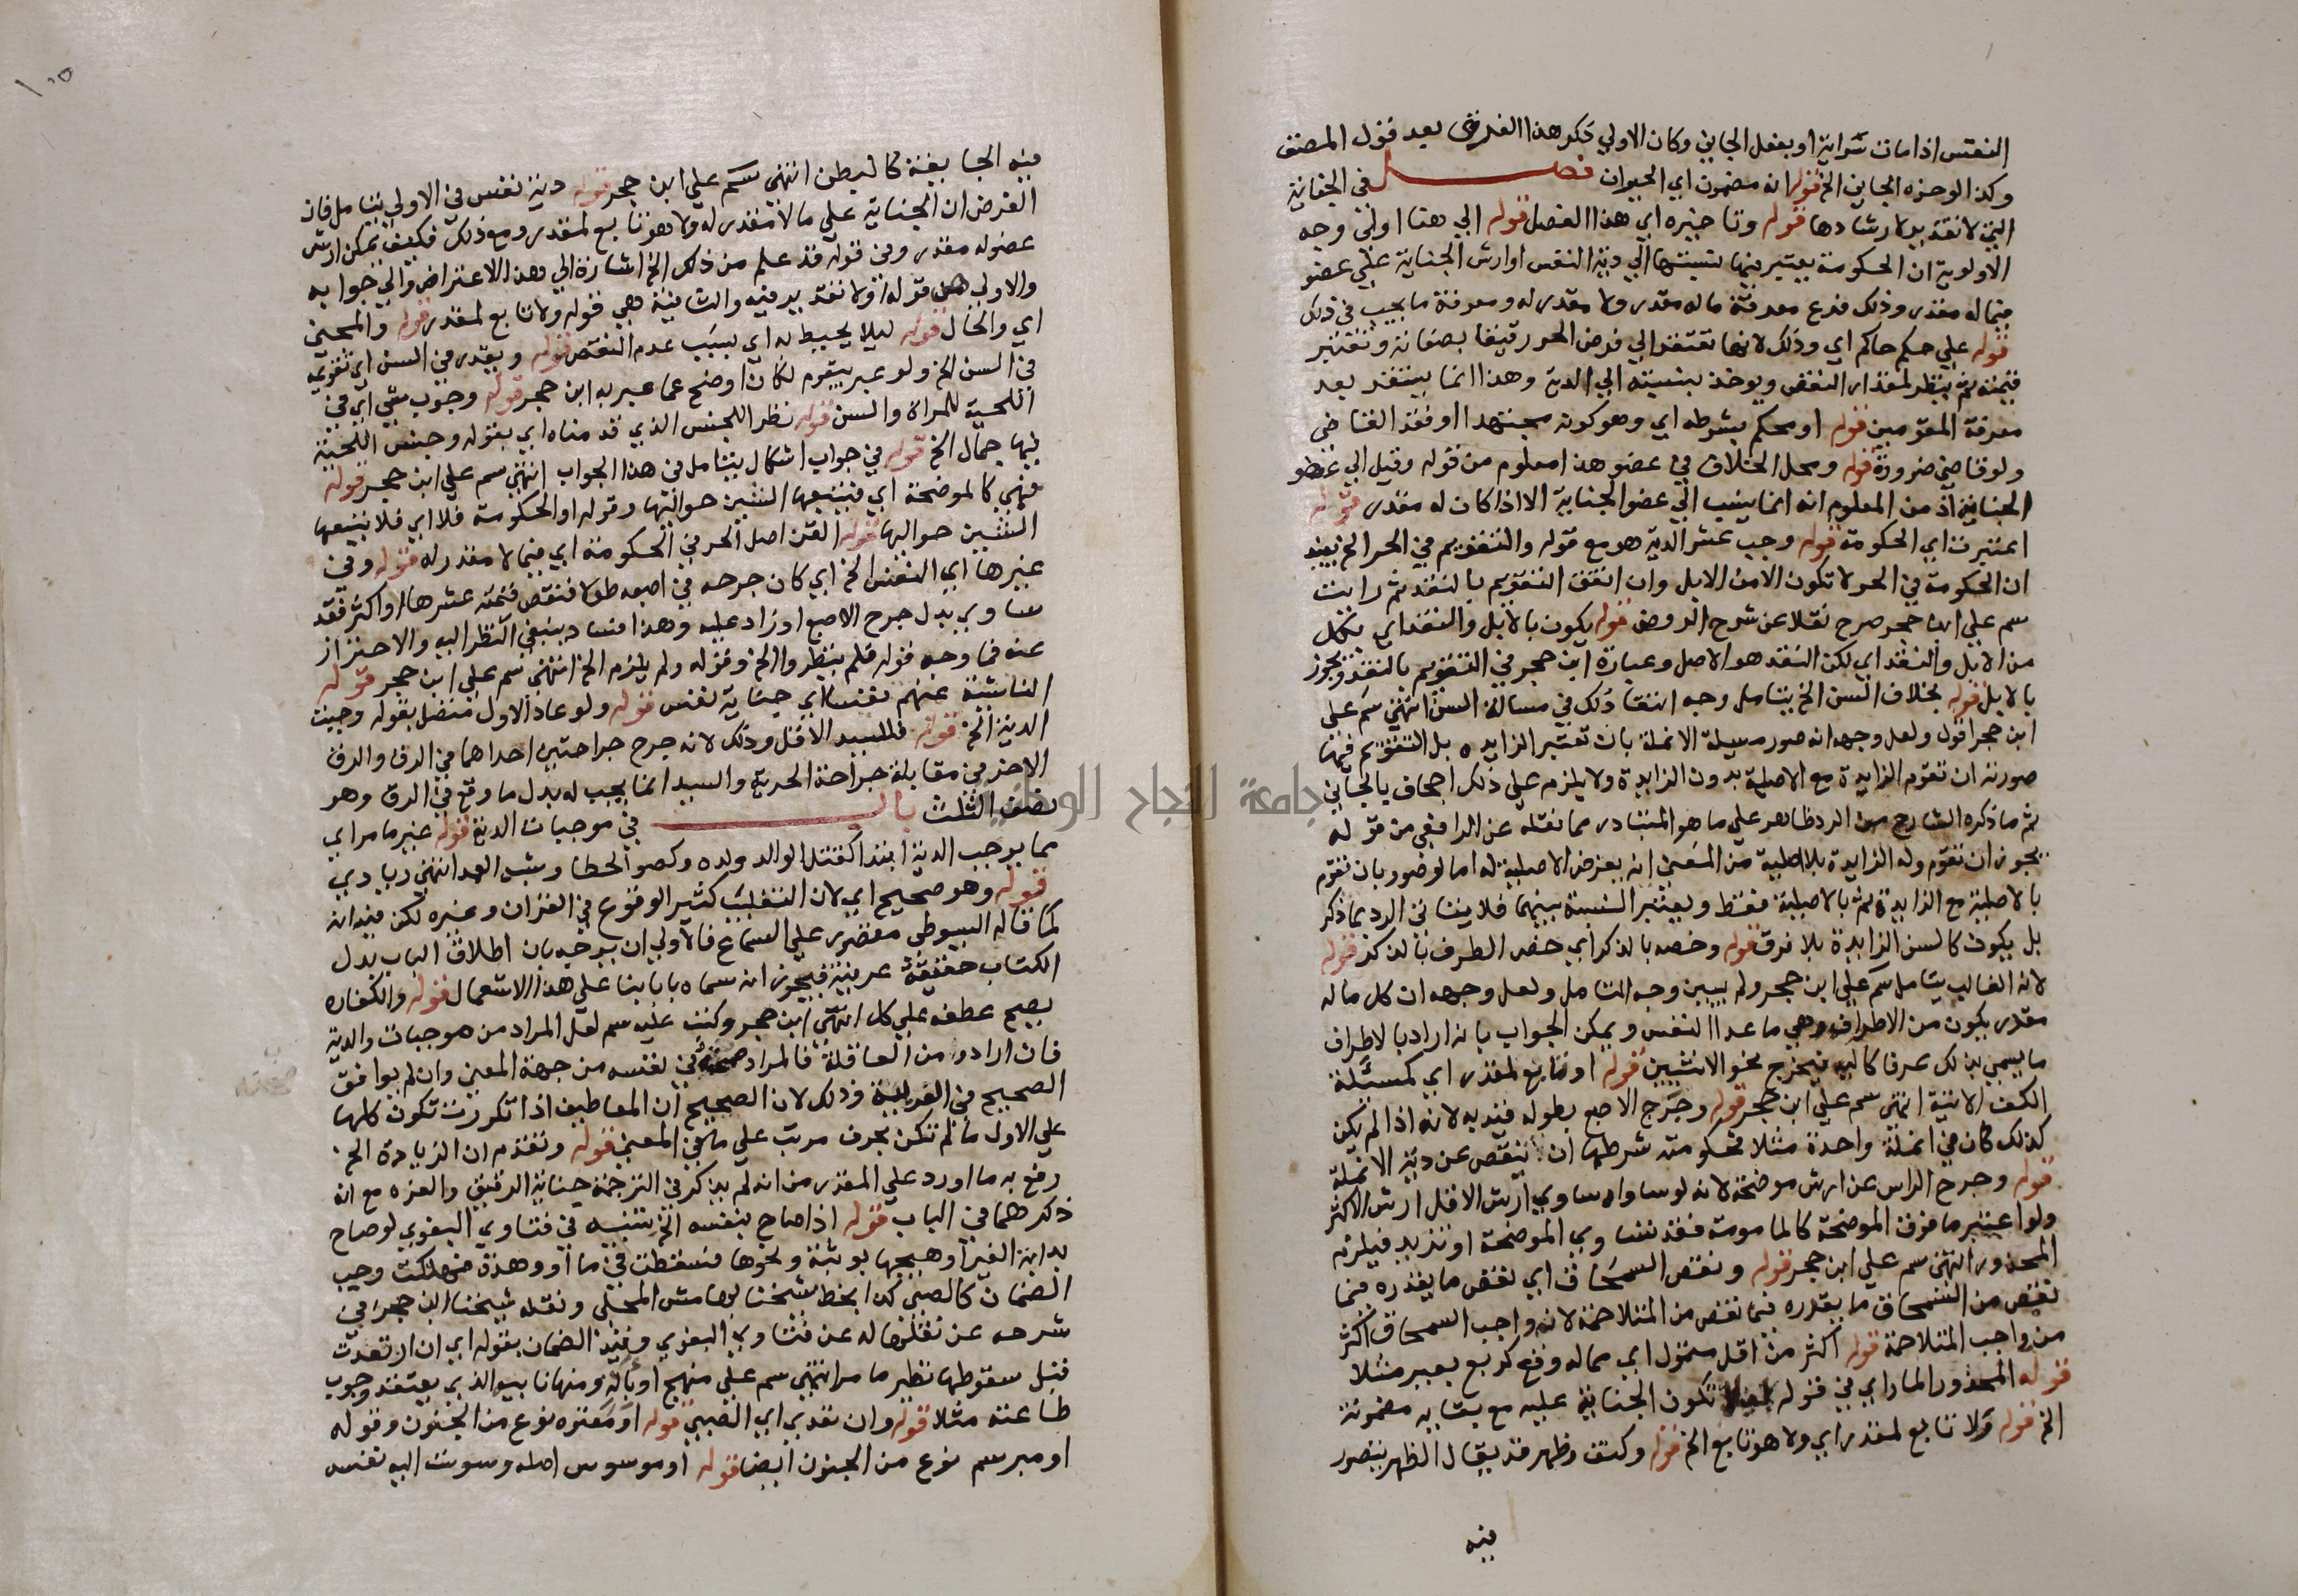 النفس اذا مات سراية او بفعل الجاني وكان الاولي ذكر هذا الفرض بعد قول المصنف
وكذا لو حزه الجاني الخ قوله انه مضمون اي الحيوان فصل في الجناية
التي لا تقدير لارشها قوله وتاخيره اي هذا الفصل قوله الي هنا اولي وجه
الاولوية ان الحكومة يعتبر فيها نسبتها الي دية النفس او ارش الجناية علي عضو
فيما له مقدر وذلك فرع معرفة ما له مقدر ولا مقدر له ومعرفة ما يجب في ذلك
قوله علي حكم حاكم اي وذلك لانها تفتقر الي فرض الحر رقيقا بصفاته وتعتبر
قيمته ثم ينظر لمقدار النقص ويوخذ بنسبته الي الدية وهذا انما يستقر بعد
معرفة المقومين قوله او محكم بشرطه اي وهو كونه مجتهدا او فقد القاضي
ولو قاضي ضرورة قوله ومحل الخلاف في عضو هذا معلوم من قوله وقيل الي عضو
الجناية اذ من المعلوم انه انما ينسب الي عضو الجناية الا اذا كان له مقدر قوله
اعتبرت اي الحكومة قوله وجب عشر الدية هو مع قوله والتقويم في الحر الخ يفيد
ان الحكومة في الحر لا تكون الا من الابل وان اتفق التقويم بالنقد ثم رايت
سم علي ابن حجر صرح نقلا عن شرح الروض قوله يكون بالابل والنقد اي بكل
من الابل والنقد اي لكن النقد هو الاصل وعبارة ابن حجر في التقويم بالنقد ويجوز
بالابل قوله بخلاف السن الخ يتامل وجه انتفا ذلك في مسالة السن انتهي سم علي
ابن حجر اقول ولعل وجهه انه صور مسيلة الانملة بان تعتبر الزايده بل التقويم فيها
صورته ان تقوم الزايدة مع الاصلية بدون الزايدة ولا يلزم علي ذلك اجحاف بالجاني
ثم ما ذكره الشارح من الرد ظاهر علي ما هو المتبادر مما نقله عن الرافعي من قوله
يجوز ان تقوم وله الزايدة بلا اصلية من السن اي بفرض الاصلية له اما لو صور بان تقوم
بالاصلية مع الزايدة ثم بالاصلية فقط ويعتبر النسبة بينهما فلا يتاتي الرد بما ذكر
بل يكون كالسن الزايدة بلا فرق قوله وخصه بالذكر اي خص الطرف بالذكر قوله
لانه الغالب يتامل سم علي ابن حجر ولم يبين وجه التامل ولعل وجهه ان كل ما له
مقدر يكون من الاطراف وهي ما عدا النفس ويمكن الجواب بانه اراد بالاطراف
ما يسمي بذلك عرفا كاليد فيخرج نحو الانثيين قوله او تابع لمقدر اي كمسئلة
الكف الاتية انتهي سم علي ابن حجر قوله وجرح الاصبع بطوله فيديه لانه اذا لم يكن
كذلك كان في انملة واحدة مثلا فحكومته شرطها ان تنقص عن دية الانملة
قوله وجرح الراس عن ارش موضحة لانه لو ساواه ساوي ارش الاقل ارش الاكثر
ولو اعتبر ما فوق الموضحة كالمامومة فقد تساوي الموضحة او تزيد فيلزم
المحذور انتهي سم علي ابن حجر قوله ونقص السمحاق اي نقص ما يقدره فيما
نقص من السمحاق ما يقدره فيما نقص من المتلاحمة لانه واجب السمحاق اكثر
من واجب المتلاحمة قوله اكثر من اقل متمول اي مما له وقع كربع بعير مثلا
قوله المحذور المار اي في قوله ليلا تكون الجناية عليه مع بقايه مضمونة
الخ قوله ولا تابع لمقدر اي ولا هو تابع الخ قوله وكتف وظهر قد يقال الظهر يتصور
فيه
فيه الجايفة كالبطن انتهي سم علي ابن حجر قوله دية نفس في الاولي يتامل فان
الفرض ان الجناية علي ما لا مقدر له ولا هو تابع لمقدر ومع ذلك فكيف يمكن ارش
عضو له مقدر وفي قوله قد علم من ذلك الخ اشارة الي هذا الاعتراض والي جوابه
والاولي هي قوله ولا تقدير فيه والثانية هي قوله ولا تابع لمقدر قوله والمجني
اي والحال قوله ليلا يحبط له اي بسبب عدم النقص قوله ويقدر في السن اي تقويمه
في السن الخ ولو عبر بيقوم لكان اوضح عما عبر به ابن حجر قوله وجوب شي اي في
اللحية للمراة والسن قوله نظر اللجنس الذي قدمناه اي بقوله وجنس اللحية
فيها جمال الخ قوله في جواب اشكال يتامل في هذا الجواب انتهي سم علي ابن حجر قوله
فهي كالموضحة اي فيتبعها الشين حواليها وقوله او الحكومة فلا اي فلا يتبعها
الشين حواليها قوله القن اصل الحر في الحكومة اي فيما لا مقدر له قوله وفي
غيرها اي النفس الخ اي كان جرحه في اصبعه طولا فنقص قيمته عشرها او اكثر فقد
ساوي بدل جرح الاصبع او زاد عليه وهذا فساد ينبغي النظر اليه والاحتراز
عنه فما وجه قوله فلم ينظروا الخ وقوله ولم يلزم الخ انتهي سم علي ابن حجر قوله
الناشية عنهم نفسا اي جناية نفس قوله ولو عاد الاول متصل بقوله وجبت
الدية الخ قوله فللسيد الاقل وذلك لانه جرح جراحتين احداهما في الرق والرق
الاخر في مقابلة جراحة الحرية والسيد انما يجب له بدل ما وقع في الرق وهو
نصف الثلث باب في موجبات الدية قوله غير ما مر اي
مما يوجب الدية ابتدا كقتل الوالد ولده وكصو الخطا وشبه العمد انتهي زيادي
قوله وهو صحيح اي لان التغليب كثير الوقوع في القران وغيره لكن فيه انه
كما قاله السيوطي مقصور علي السماع فالاولي ان يوجه بان اطلاق الباب بدل
الكتاب حقيقة عرفية فيجوز انه سماه بابا بنا علي هذا الاستعمال قوله والكفاره
يصح عطفه علي كل انتهي ابن حجر وكتب عليه سم لعل المراد من موجبات والدية
فان اراد من العاقلة فالمراد صحته في نفسه من جهة المعني وان لم يوافق
الصحيح في العربية وذلك لان الصحيح ان المعاطيف اذا تكررت تكون كلها
علي الاول ما لم تكن بحرف مرتب علي ما في المعني قوله وتقدم ان الزيادة الخ
رفع به ما اورد علي المقدر من انه لم يذكر في الترجمة جناية الرقيق والغره مع انه
ذكرهما في الباب قوله اذا صاح بنفسه الخ تنبيه في فتاوي البغوي لو صاح
بدابة الغير او هيجها بوثبة ونحوها فسقطت في ما او وهدة فهلكت وجب
الضمان كالصبي كذا بخط شيخنا بهامش المحلي ونقله شيخنا ابن حجر في
شرحه عن نقلهما له عن فتاوي البغوي وقيد الضمان بقوله اي ان ارتعدت
قبل سقوطها نظير ما مر انتهي سم علي منهج اوبآلة ومنها نايبه الذي يعتقد وجوب
طاعته مثلا قوله وان تعدي اي الصبي قوله او معتوه نوع من الجنون وقوله
او مبرسم نوع من الجنون ايضا قوله او موسوس اصله وسوست اليه نفسه
جامعة النجاح الوطنية